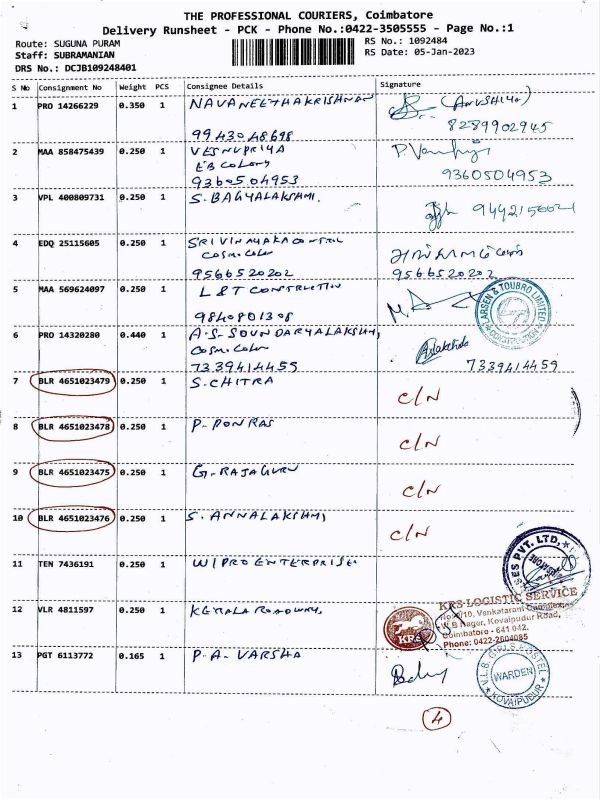 THE PROFESSIONAL COURIERS, Coimbatore
Delivery Runsheet - PCK - Phone No.:0422-3505555 - Page No.:1
Route: SUGUNA PURAM
RS No.: 1092484
Staff: SUBRAMANIAN
RS Date: 05-Jan-2023
DRS No.: DCJB109248401
S No Consignment No Weight PCS Consignee Details Signature
1 PRO 14266229 0.350 1 NAVANEETHAKRISHNAN
(ANUSHIYA)
9943048698
8289902945
2 MAA 858475439 0.250 1 VESNUPRIYA
EB Colony
9360504953
9360504953
3 VPL 400809731 0.250 1 S. BAGYALAKSHMI.
4 EDQ 25115605 0.250 1 SRI VINAYAKA
9566520202
9566520202
5 MAA 569624097 0.250 1 L & T CONSTRUCTION
9840801308
LARSEN & TOUBRO LIMITED
CONSTRUCTION
6 PRO 14320280 0.440 1 A.S. SOUNDARYALAKSHMI
7339414459
7339414459
7 BLR 4651023479 0.250 1 S. CHITRA
C/N
8 BLR 4651023478 0.250 1 P. PONRAJ
C/N
9 BLR 4651023475 0.250 1 G. RAJAGURU
C/N
10 BLR 4651023476 0.250 1 S. ANNALAKSHMI
C/N
11 TEN 7436191 0.250 1 WIPRO ENTERPRISE
PVT. LTD.
12 VLR 4811597 0.250 1 KERALA ROADWAY
KRS
KRS-LOGISTIC SERVICE
Venkataram Complex,
Nagar, Kovaipudur Road,
Coimbatore - 641 042.
Phone: 0422-2604085
13 PGT 6113772 0.165 1 P. A. VARSHA
HOSTEL
WARDEN
KOVAIPUDUR
4